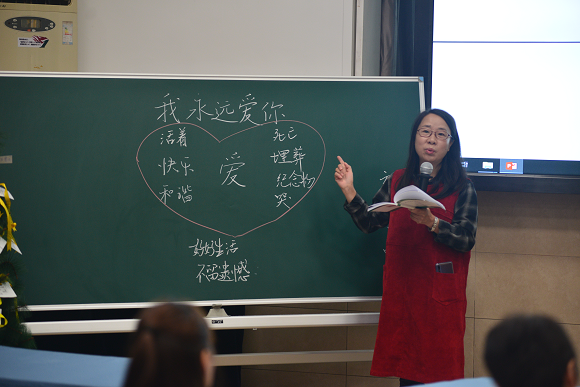 我永远爱你
活着
快乐
和谐
爱
死亡
埋葬
纪念物
哭
好好生活
不留遗憾